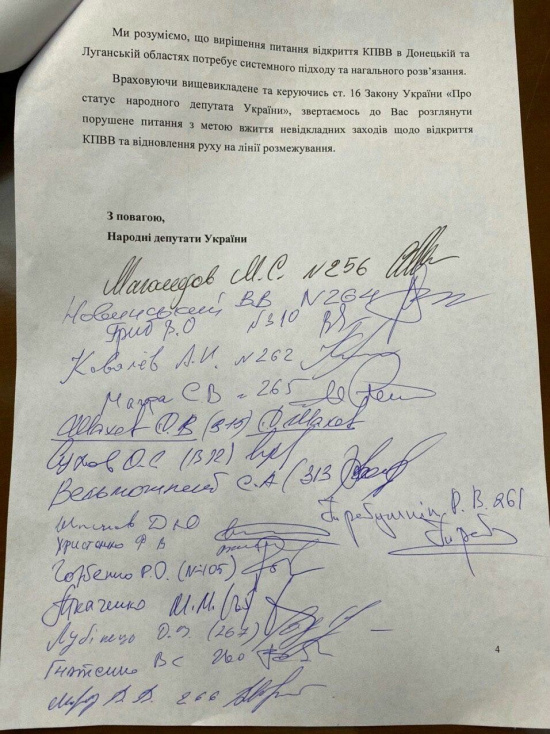 Ми розуміємо, що вирішення питання відкриття КПВВ в Донецькій та
Луганській областях потребує системного підходу та нагального розв'язання.
Враховуючи вищевикладене та керуючись ст. 16 Закону України «Про
статус народного депутата України», звертаємось до Вас розглянути
порушене питання з метою вжиття невідкладних заходів щодо відкриття
КПВВ та відновлення руху на лінії розмежування.
З повагою,
Народні депутати України
Магомедов М.С. N256
Новинський ВВ N264
N310
Ковальов А.И. N262
СВ - 265
Шахов С.В (315) С. Шахов
Сухов О.С
Вельможний С.А (313
Р. В. 261
Д Ю
Христенко Ф В
Горбенко Р.О. (№105)
Ткаченко М.М.
Лубінець (267)
Гнатенко ВС 260
266
4